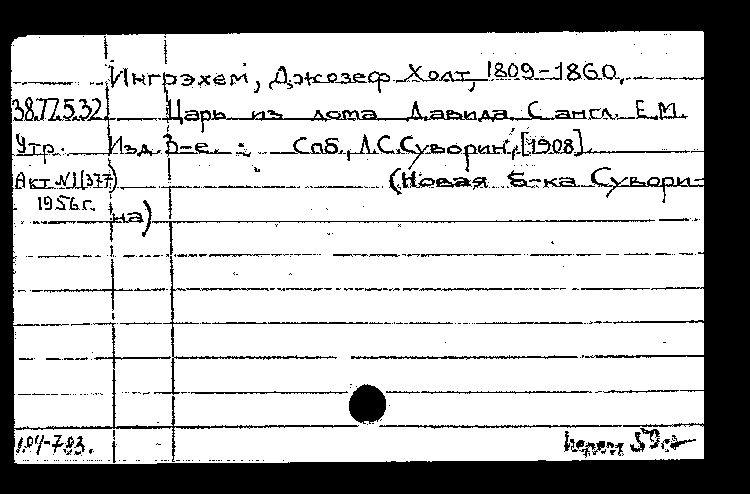 Ингрэхем, Джозеф Холт, 1809-1860.
38.77.5.32 Царь из дома Давида. С англ. Е.М.
Утр. Изд. 3-е. Спб., А.С.Суворин, [1908].
Акт №1(377) (Новая б-ка Сувори-
1956г. на)